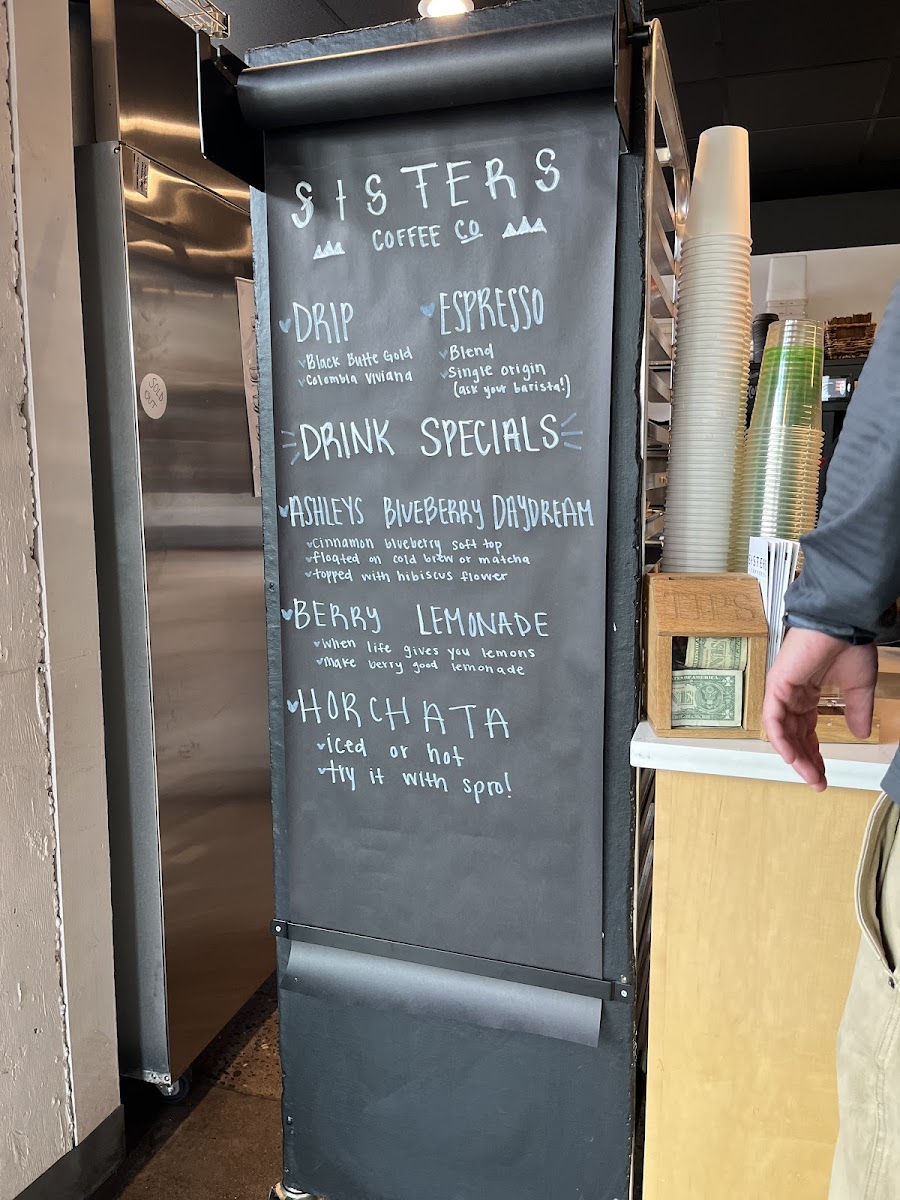 SISTERS
COFFEE CO
DRIP
Black Butte Gold
Colombia Viviana
ESPRESSO
Blend
Single origin
(ask your barista!)
DRINK SPECIALS
ASHLEYS BLUEBERRY DAYDREAM
cinnamon blueberry soft top
floated on cold brew or matcha
topped with hibiscus flower
BERRY LEMONADE
when life gives you lemons
make berry good lemonade
HORCHATA
iced or hot
try it with spro!
SOLD
OUT
SISTER